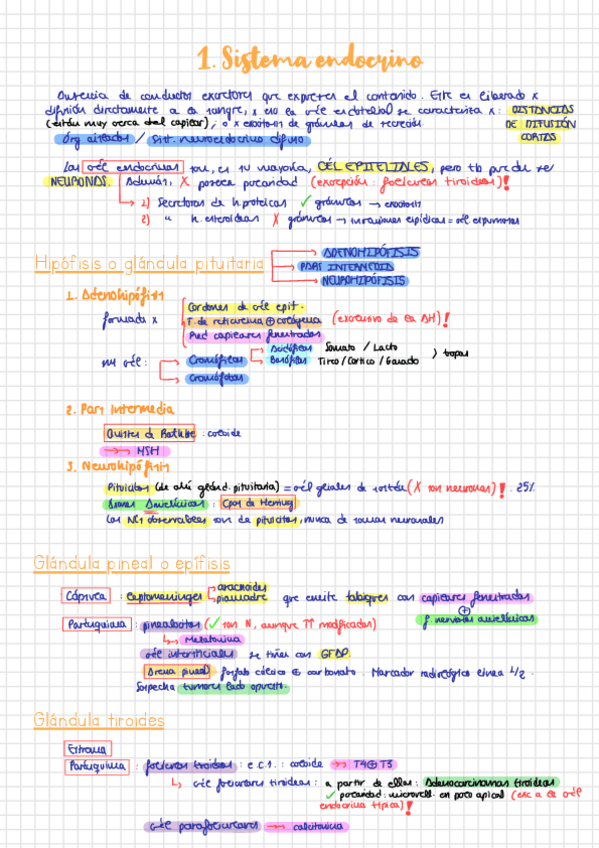 1. Sistema endocrino
Ausencia de conductos excretores que expresen el contenido. Este es liberado x
difusión directamente a la sangre, x eso la cél endotelial se caracteriza x: DISTANCIAS
(están muy cerca del capilar), o x exocitosis de gránulos de secreción. DE DIFUSIÓN
órg aislados / Sist. neuroendocrino difuso CORTAS
Las cél endocrinas son, en su mayoría, CÉL EPITELIALES, pero tb puede ser
NEURONAS. Además, X poseen polaridad (excepción: folículos tiroideos)!
1) Secretoras de h. proteicas ✓ gránulos → exocitosis
2) " h. esteroideas X gránulos → inclusiones lipídicas = cél espumosas
Hipófisis o glándula pituitaria
ADENOHIPÓFISIS
PARS INTERMEDIA
NEUROHIPÓFISIS
1. Adenohipófisis
formada x
Cordones de cél epit.
T. de reticulina ⊕ colágena (exclusivo de la AH)!
Red capilares fenestrados
cél:
Cromófilas
Acidófilas Somato / Lacto
Basófilas Tiro / Cortico / Gonado
tropas
Cromófobas
2. Pars Intermedia
Quistes de Rathke : coloide
→ MSH
3. Neurohipófisis
Pituicitos (de ahí glánd. pituitaria) = cél gliales de sostén (X son neuronas)! 25%
Axones Amielínicos : Cpos de Herring
Los NCs observables son de pituicitos, nunca de somas neuronales
Glándula pineal o epífisis
Cápsula : leptomeninges
aracnoides
piamadre
que emite tabiques con capilares fenestrados
⊕
f. nerviosas amielínicas
Parénquima : pinealocitos (✓ son N, aunque ↑↑ modificadas)
↳ Melatonina
cél intersticiales se tiñen con GFAP
Arena pineal fosfato cálcico ⊕ carbonato. Marcador radiológico línea 1/2.
Sospecha tumores lado opuesto.
Glándula tiroides
Estroma
Parénquima : folículos tiroideos : e.c.s. : coloide → T4 ⊕ T3
↳ cél foliculares tiroideas : a partir de ellas: Adenocarcinomas tiroideos
✓ polaridad: microvell. en polo apical (exc a la cél
endocrina típica)!
cél parafoliculares → calcitonina